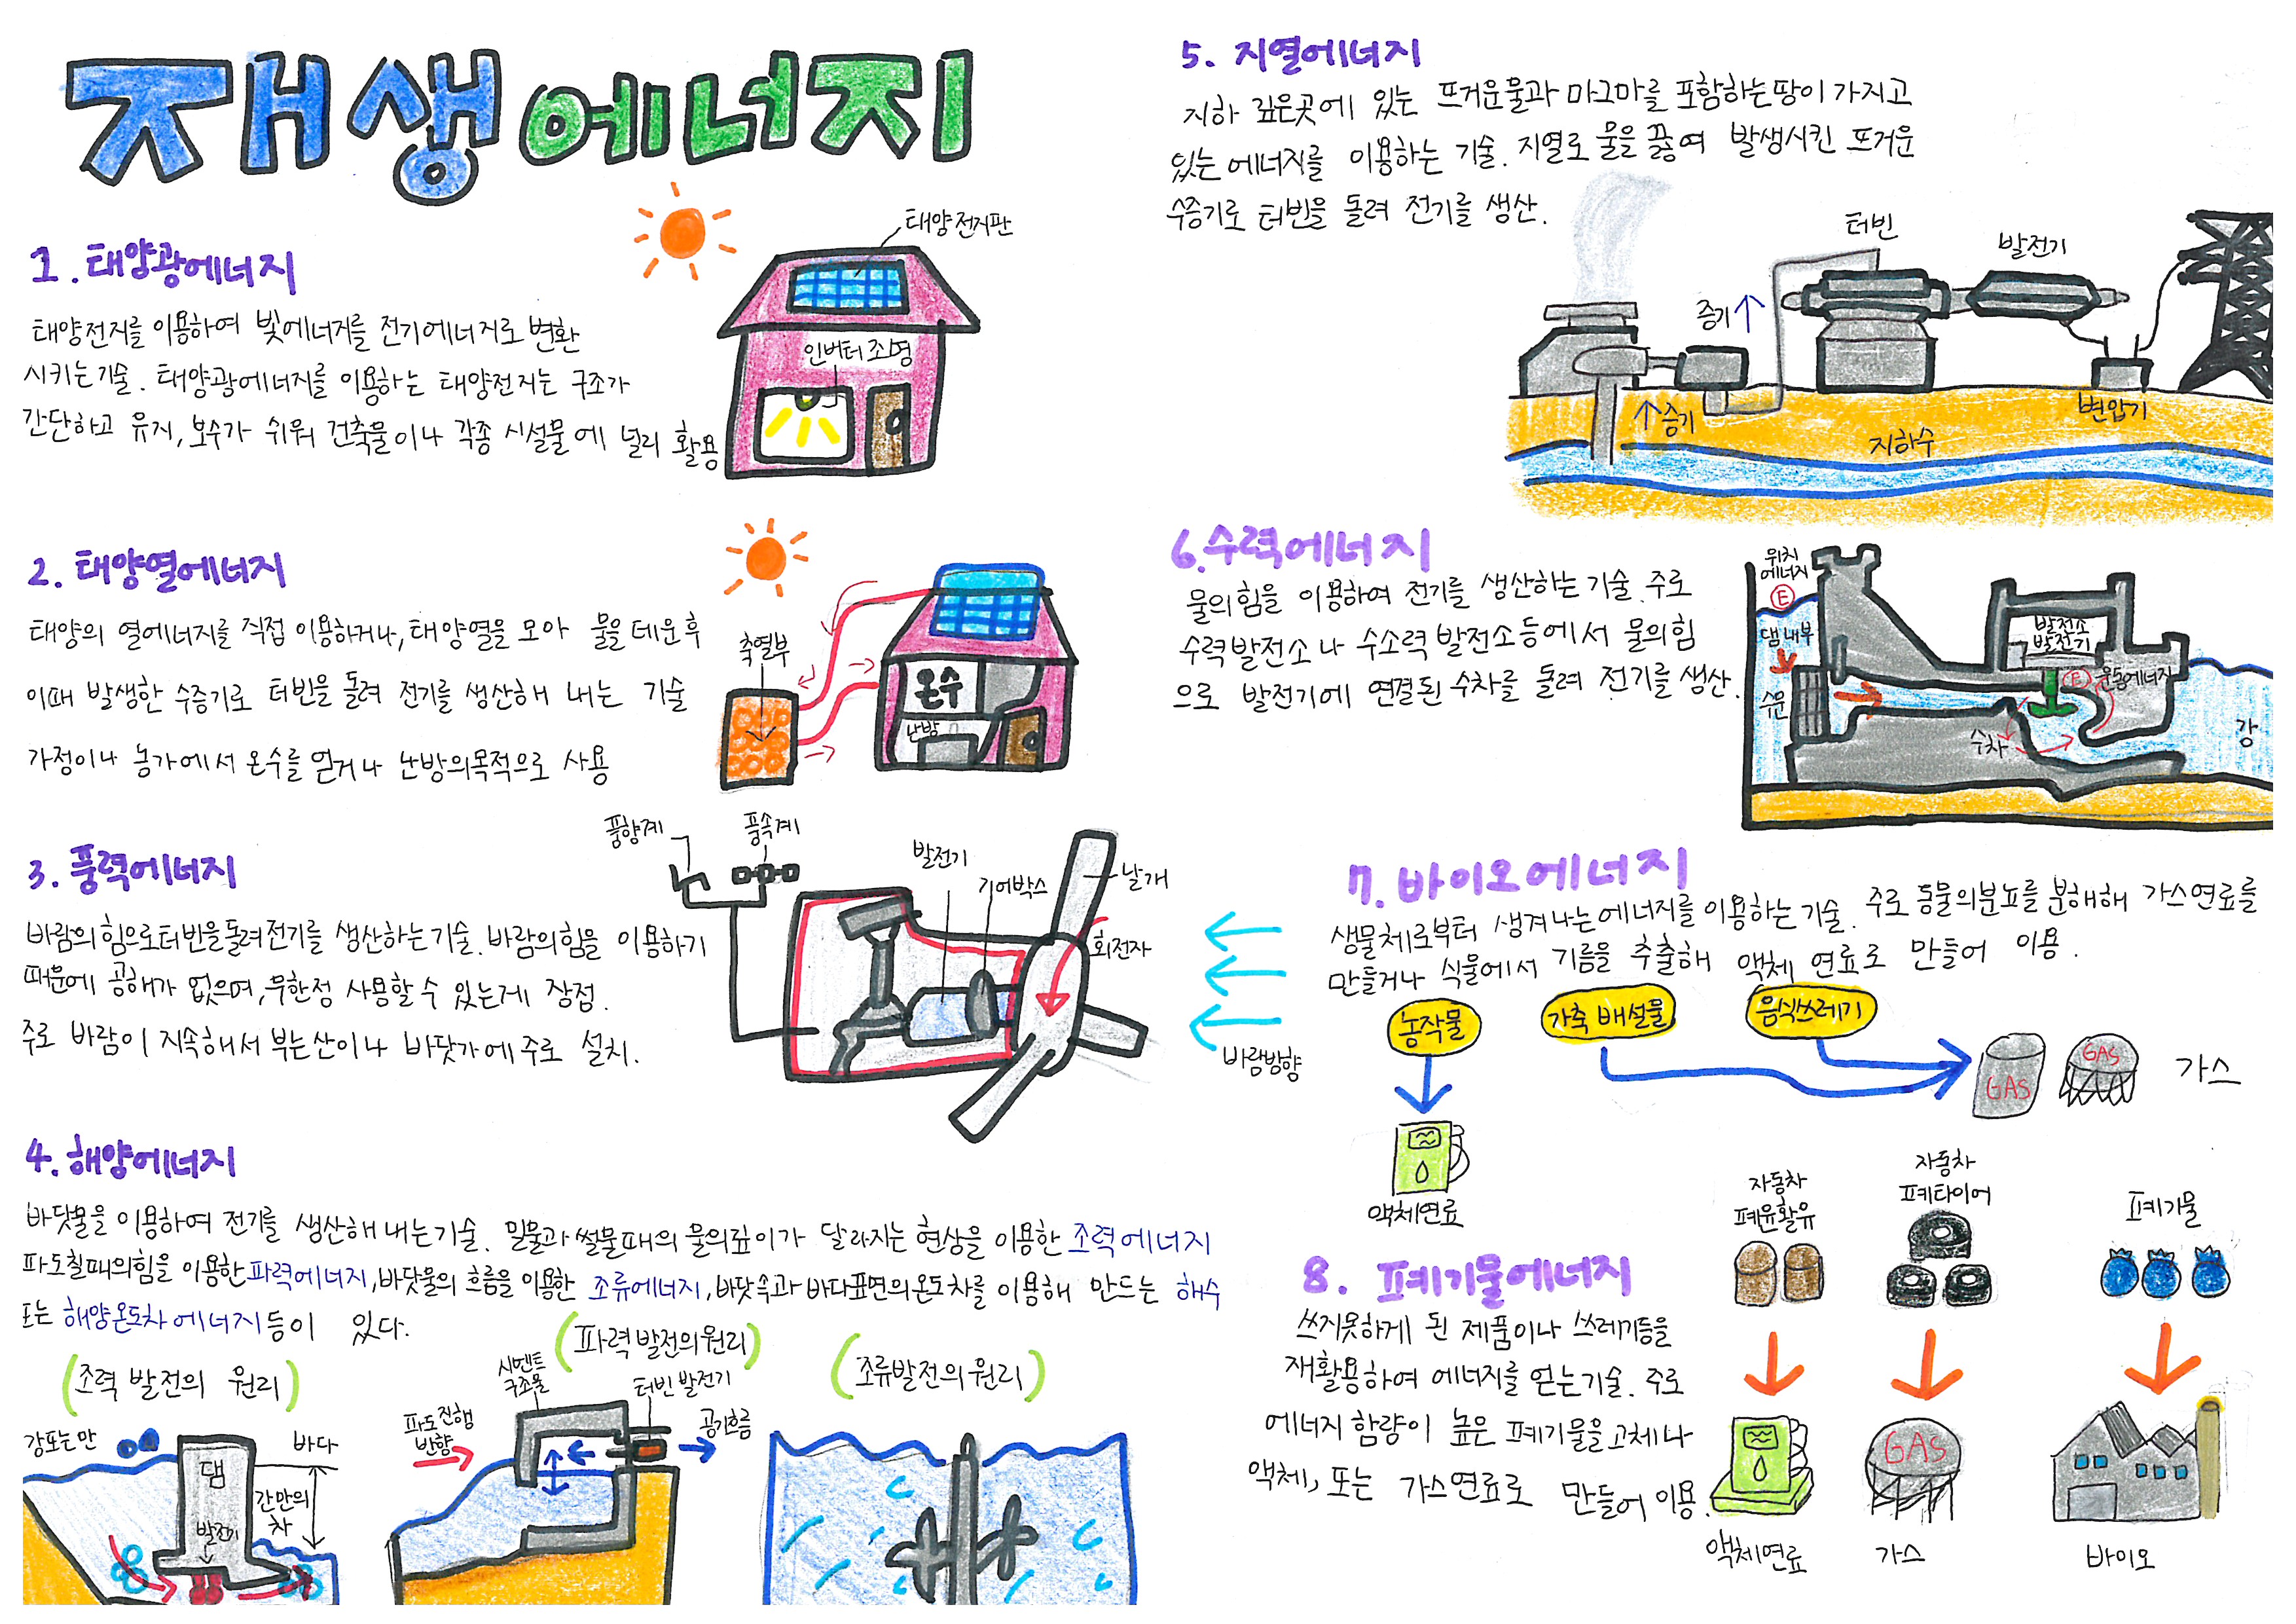 재생에너지
1. 태양광에너지
태양전지를 이용하여 빛에너지를 전기에너지로 변환
시키는기술. 태양광에너지를 이용하는 태양전지는 구조가
간단하고 유지, 보수가 쉬워 건축물이나 각종 시설물에 널리 활용
태양전지판
인버터 조명
2. 태양열에너지
태양의 열에너지를 직접 이용하거나, 태양열을 모아 물을 데운 후
이때 발생한 수증기로 터빈을 돌려 전기를 생산해 내는 기술
가정이나 농가에서 온수를 얻거나 난방의목적으로 사용
축열부
온수
난방
3. 풍력에너지
바람의 힘으로 터빈을 돌려 전기를 생산하는 기술. 바람의 힘을 이용하기
때문에 공해가 없으며, 무한정 사용할 수 있는게 장점.
주로 바람이 지속해서 부는 산이나 바닷가에 주로 설치.
풍향계
풍속계
발전기
기어박스
날개
회전자
바람방향
4. 해양에너지
바닷물을 이용하여 전기를 생산해 내는 기술. 밀물과 썰물때의 물의 깊이가 달라지는 현상을 이용한 조력에너지
파도칠때의힘을 이용한 파력에너지, 바닷물의 흐름을 이용한 조류에너지, 바닷속과 바다표면의 온도차를 이용해 만드는 해수
또는 해양온도차 에너지 등이 있다.
(조력 발전의 원리)
강또는만
댐
발전기
바다
간만의
차
(파력 발전의 원리)
시멘트
구조물
터빈 발전기
파도 진행
방향
공기흐름
(조류발전의 원리)
5. 지열에너지
지하 깊은곳에 있는 뜨거운물과 마그마를 포함하는 땅이 가지고
있는 에너지를 이용하는 기술. 지열로 물을 끓여 발생시킨 뜨거운
수증기로 터빈을 돌려 전기를 생산.
터빈
발전기
증기
증기
변압기
지하수
6. 수력에너지
물의 힘을 이용하여 전기를 생산하는 기술. 주로
수력발전소나 수소력 발전소등에서 물의 힘
으로 발전기에 연결된 수차를 돌려 전기를 생산.
위치
에너지
E
댐 내부
수문
발전소
발전기
E 운동에너지
수차
강
7. 바이오에너지
생물체로부터 생겨나는 에너지를 이용하는 기술. 주로 동물의 분뇨를 분해해 가스연료를
만들거나 식물에서 기름을 추출해 액체 연료로 만들어 이용.
농작물
가축 배설물
음식쓰레기
GAS
GAS
가스
액체연료
8. 폐기물에너지
쓰지못하게 된 제품이나 쓰레기등을
재활용하여 에너지를 얻는기술. 주로
에너지 함량이 높은 폐기물을 고체나
액체, 또는 가스연료로 만들어 이용.
자동차
폐윤활유
자동차
폐타이어
폐기물
GAS
액체연료
가스
바이오